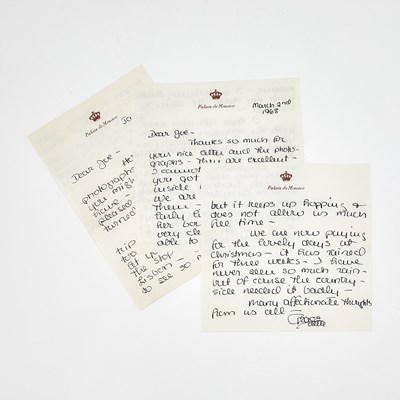 Palais de Monaco
Dear Joe -
photographs
you might
have -
pleased
turned
trip
too
let up -
The stop
Lisbon -
to see so m
Palais de Monaco
March 2nd
1963
Dear Joe -
Thanks so much for
your nice letter and the photo-
graphs - They are excellent -
I cannot
you got
inside
we are
them -
early
her bo
very cle
able to
Palais de Monaco
but it keeps us hopping &
does not allow us much
free time -
We are now paying
for the lovely days at
Christmas - it has rained
for three weeks - I have
never seen so much rain -
but of course the country-
side needed it badly -
many affectionate thoughts
from us all -
Grace